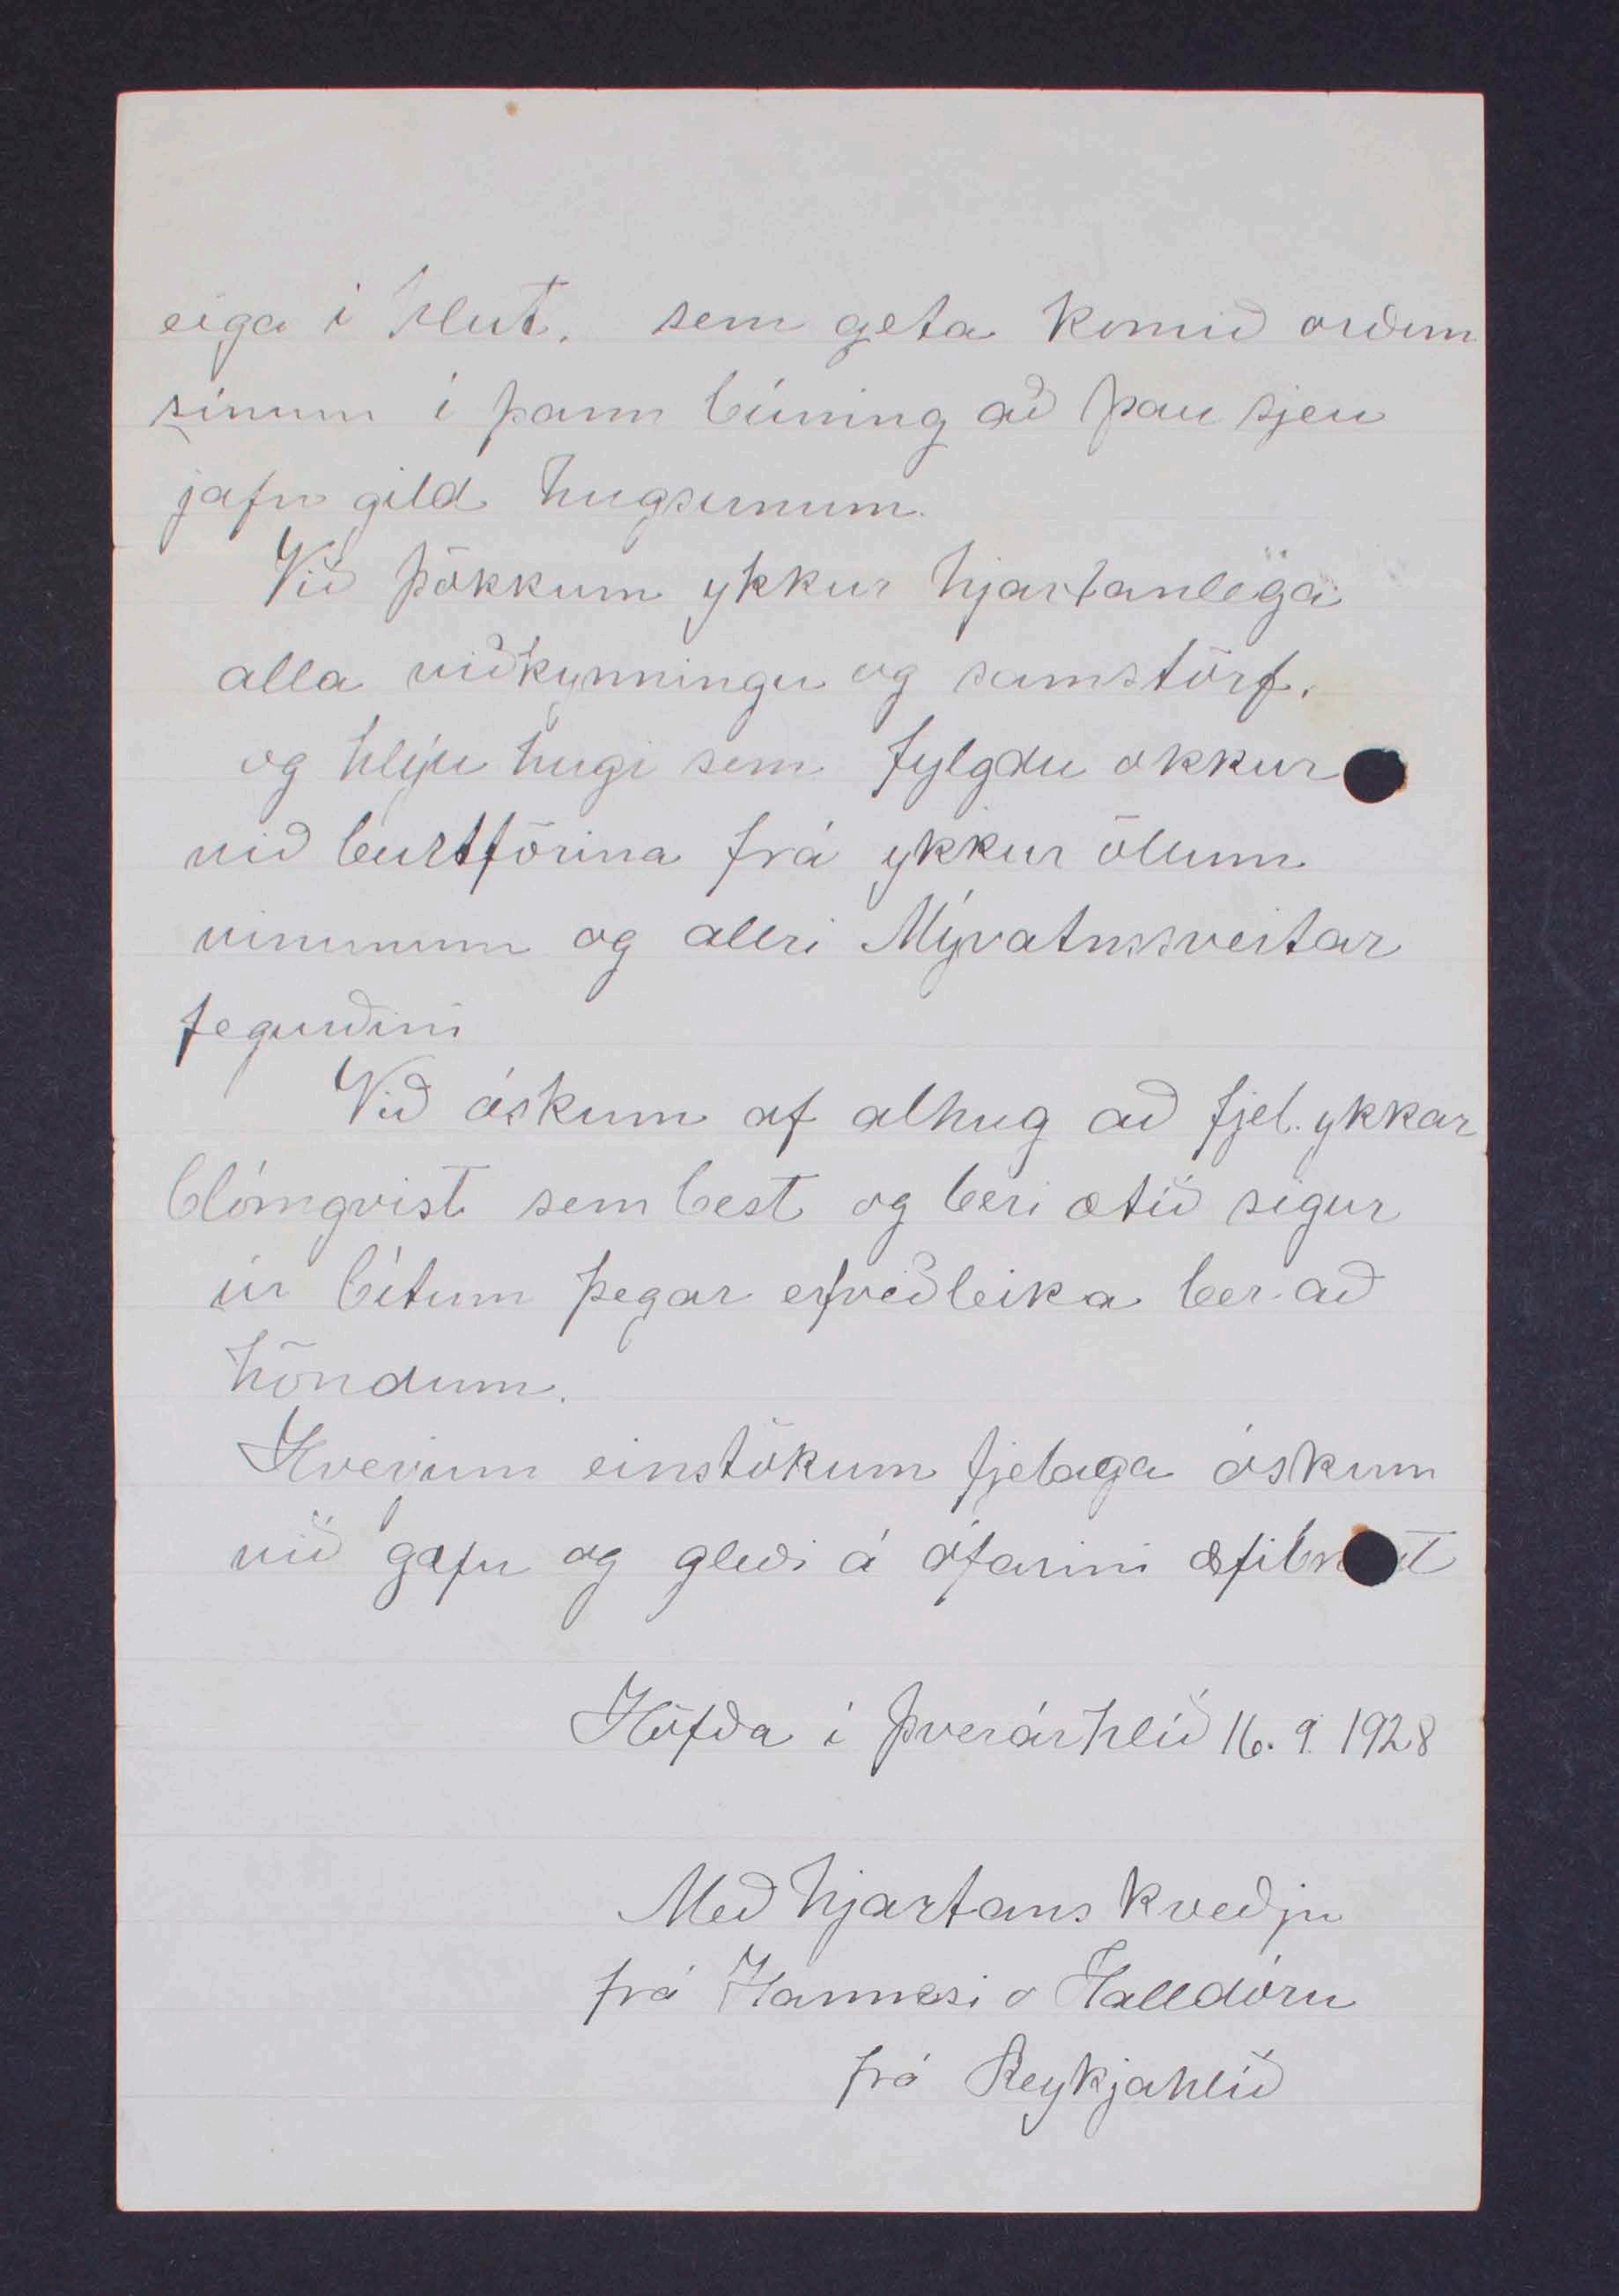 eiga í hlut. sem geta komið orðum
sínum í þann búning að þau sjeu
jafn gild hugsunum.
Við þökkum ykkur hjartanlega
alla viðkynningu og samstörf.
og hlýju hugi sem fylgdu okkur
við burtförina frá ykkur ölum
vinunum og allri Mývatnssveitar
fegurðini
Við óskum af alhug að fjel. ykkar
blómgvist sem best og beri ætið sigur
úr bítum þegar erfveðleika ber að
höndum.
Hverjum einstökum fjelaga óskum
við gæfu og gleði á ófarini æfibraut
Höfða í Þverárhlíð 16. 9. 1928
Með hjartans kveðju
frá Hannesi o Halldóru
frá Reykjahlíð